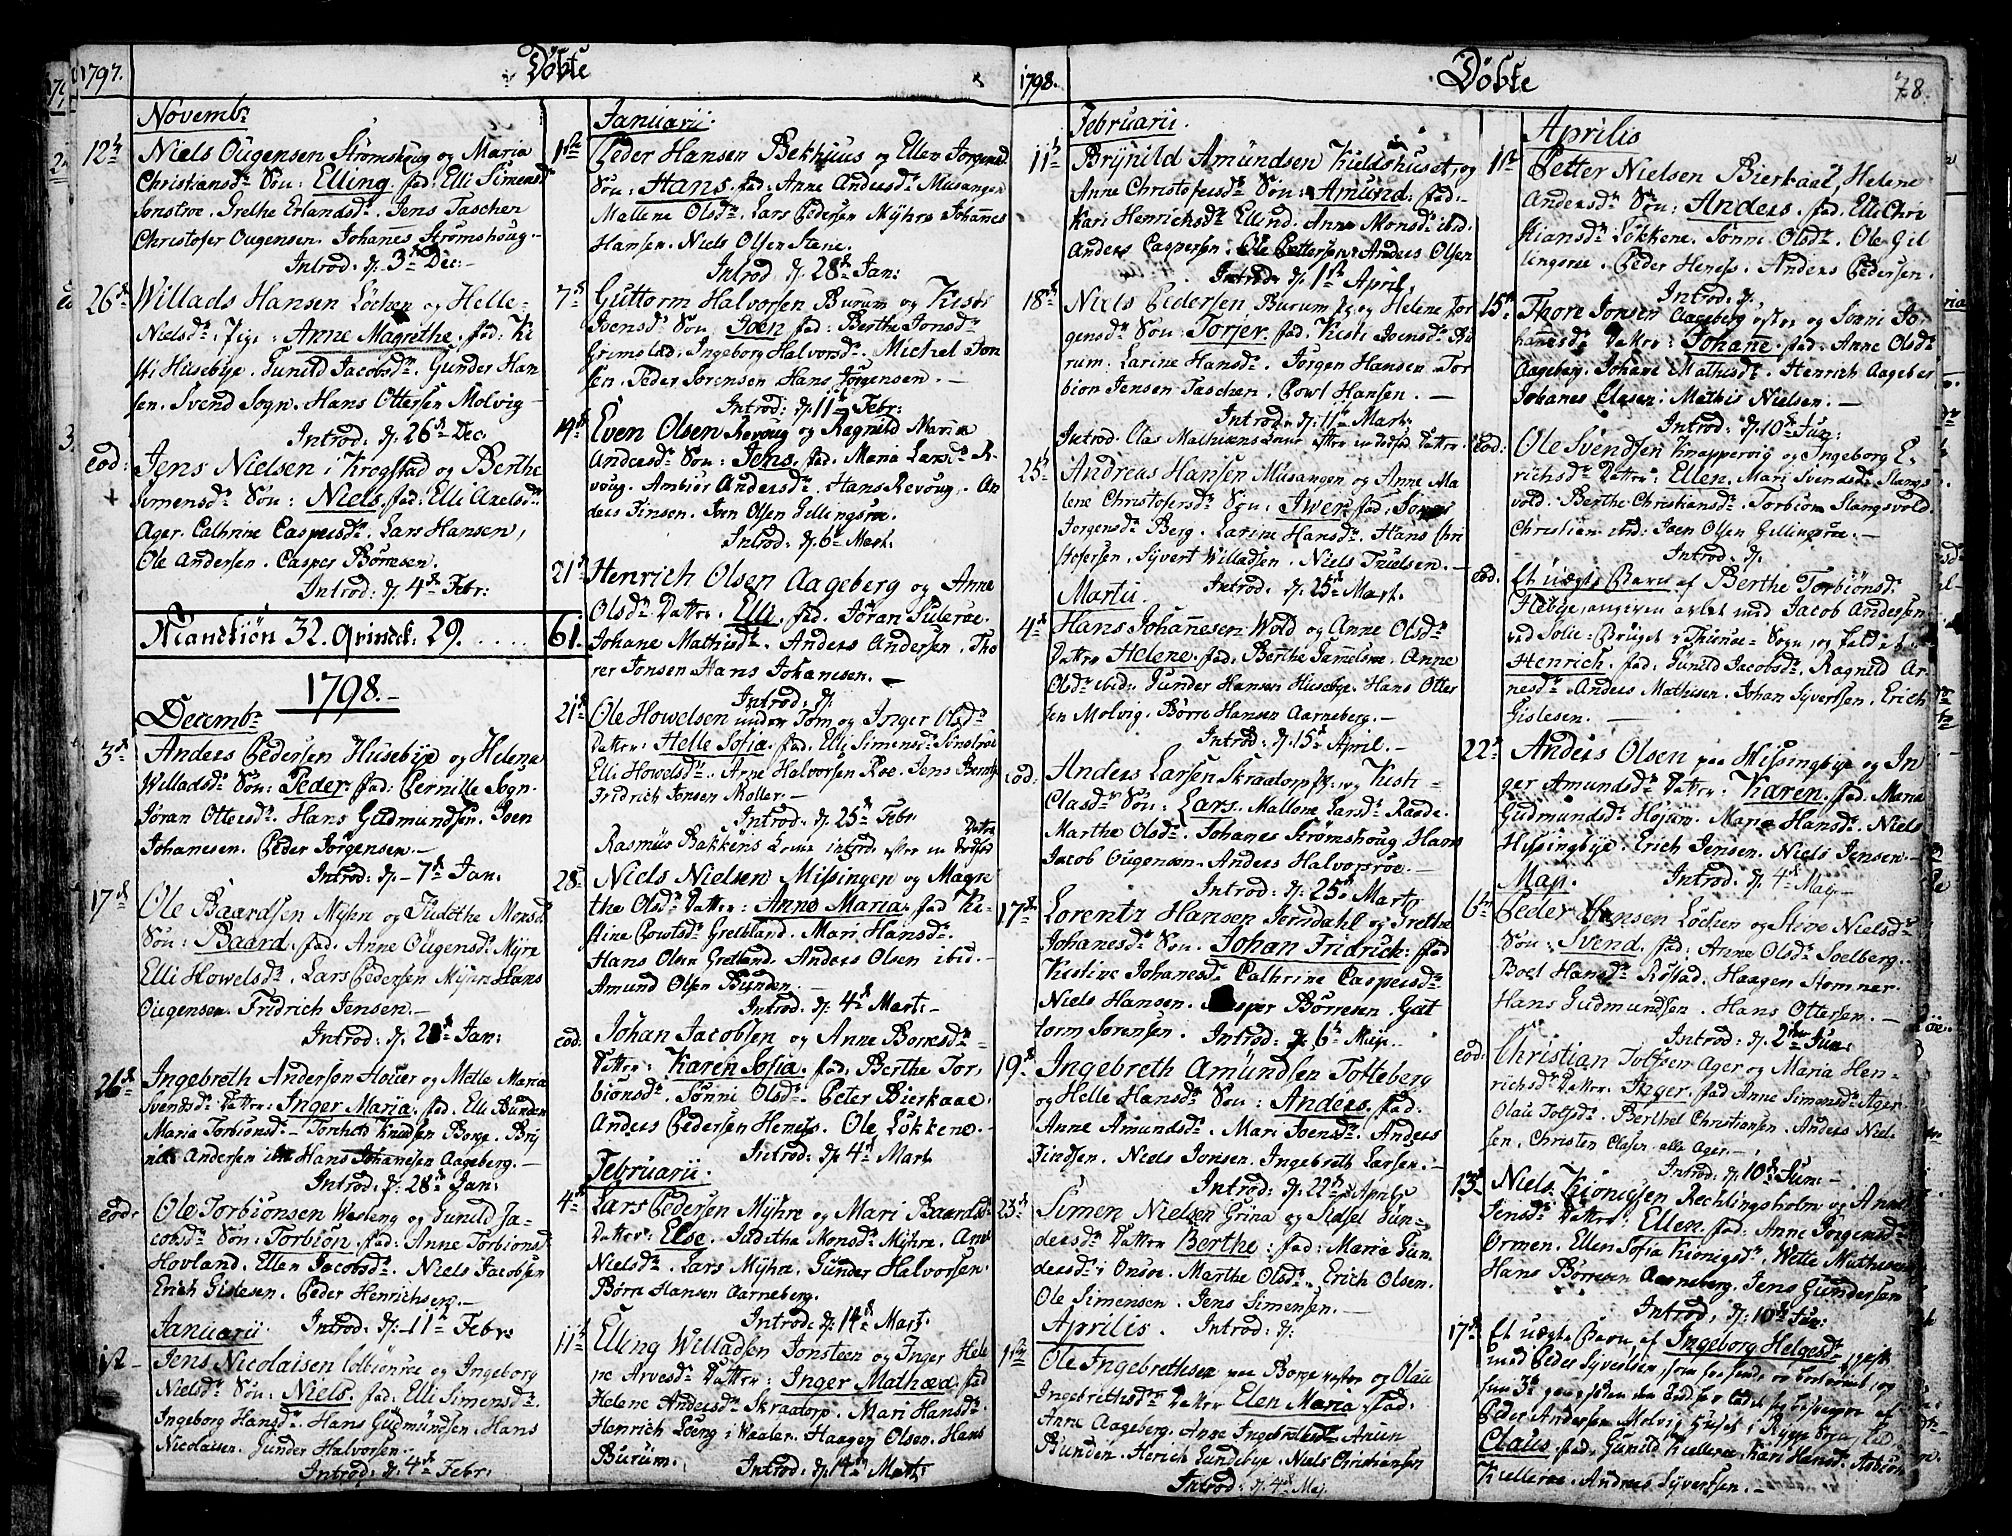 1797.
Döbte
Novembr
12te
Niels Ougensen Strömshoug og Maria
Christiansdr Sön: Elling. fad: Elli Simensd
Sonstroe. Grethe Erlandsdr. Jens Taschen
Christofer Ougensen. Johanes Strömshoug.-
Introd: d. 3de Dec:-
26de
Willads Hansen Löchen og Helle-
Nielsdr. Pige: Anne Magrethe. fad: Ki
sti Husebye. Gunild Jacobsdr. Gunder Han
sen. Svend Sogn. Hans Ottersen Molvig-
Introd: d. 26de Dec.
eod:
Jens Nielsen i Krogstad og Berthe
Simensdr Sön: Niels. fad: Elli Axelsdr.
Ager. Cathrine Caspersdr. Lars Hansen,
Ole Andersen. Casper Börresen.
Introd: d. 4de Febr:
Mandkiön 32. Qvindek: 29. ..... 61.
1798.-
Decembr
3de
Anders Pedersen Husebye og Helene
Willadsdr Sön: Peder. fad: Pernille Sogn.
Jöran Ottersdr. Hans Gudmundsen. Joen
Johanesen. Peder Jörgensen.-
Introd: d.- 7de Jan:
17de
Ole Baardsen Myhre og Judithe Monsdr
Sön: Baard. fad: Anne Ougensdr. Myre
Elli Howelsdr. Lars Pedersen Myhre Hans
Ougensen. Fridrich Jensen.-
Introd: d. 28de Jan:
26de
Ingebreth Andersen Houer og Mette Maria
Svendsdr Datter: Inger Maria. fad. Elli Bunden
Maria Torbionsdr.- Torchild Knudsen Borge. Bry
nild Andersen ibid Hans Johanesen Aageberg.-
Introd: d. 28de Jan:
eod:
Ole Torbionsen Wasteng og Gunild Ja-
cobsdr Sön: Torbiön. fad: Anne Torbionsd
Hovland. Ellen Jacobsdr. Niels Jacobsen
Erich Gislesen. Peder Henrichsen.-
Introd: d.- 11te Febr:
Januarii
1ste
Jens Nicolaisen Colbionroe og Ingeborg
Nielsdr Sön: Niels. fad: Elli Simensdr.
Ingeborg Hansdr. Hans Gudmundsen. Hans
Nicolaisen. Gunder Halvorsen.
Introd: d. 4de Febr:
Januarii.
1ste
Peder Hansen Bekhuus og Ellen Jorgensd
Sön: Hans. fad: Anne Andersdr Musangen
Mallene Olsdr. Lars Pedersen Myhre Johannes
Hansen. Niels Olsen Stene.
Introd d. 28de Jan:
7de
Guttorm Halvorsen Burum og Kisti
Joensdr Sön: Joen. fad: Berthe Jonsdr
Grimstad. Ingeborg Halvorsdr. Michel Jon
sen. Peder Sorensen Hans Jörgensen.-
Introd: d. 11te Febr:
14de
Even Olsen Revoug og Ragnild Maria
Andersdr Sön: Jens. fad: Maria Larsdr R-
voug. Ambiör Andersdr. Hans Revoug. An
ders Finsen. Iven Olsen Gillingsroe.
Introd: d. 6te Mart.
21de
Henrich Olsen Aageberg og Anne
Olsdr. Datter: Elli. fad. Jöran Suleroe.
Johane Mathisdr. Anders Andersen. Tho
rer Jonsen Hans Johanesen.-
Introd: d.
21de
Ole Howelsen under Tom og Inger Olsdr
Datter: Helle Sofia. fad. Elli Simensdr Sonstroe
Elli Howelsdr. Arne Halvorsen Roe. Jens Berntz
Fridrich Jensen Moller.-
Introd: d. 25de Febr.
Rasmus Bakkens Kone introd. efter en dödfød Datter
28de
Niels Nielsen Missingen og Magre
the Olsdr Datter: Anne Maria. fad Ki-
stine Powlsdr. Gretland. Mari Hansdr.
Hans Olsen Gretland. Anders Olsen ibid.-
Amund Olsen Bunden.-
Introd: d. 4de Mart.-
eod:
Johan Jacobsen og Anne Borresdr-
Datter: Karen Sofia. fad: Berthe Tor,
bionsdr. Sönni Olsdr. Peter Bierkaae.
Anders Pedersen Heness. Ole Lökkene.-
Introd: d. 4de Mart
Februarii.
4de
Lars Pedersen Myhre og Mari Baardsd-
Datter: Else. Juditha Monsdr. Myhre. Ane
Nielsdr. Lars Myhre. Gunder Halvorsen.
Börre Hansen Aarneberg.
Introd: d. 14de Mart.
11te
Elling Willadsen Jonsteen og Inger Hele
ne Arvesdr Datter: Inger Mathea. fad
Helene Andersdr Skraatorp. Mari Hansdr.
Henrich Löeng: Waaler. Haagen Olsen. Hans
Burum.
Introd: d. 14de Mart.
1798.
Döbte
78.
Februarii.
11te
Brÿnild Amundsen Kieldshuset og
Anne Christofersdr Sön: Amund. fad.-
Kari Henrichsdr Ellind. Anne Monsdr ibid.
Anders Caspersen. Ole Pettersen. Anders Olsen
Introd: d. 1ste April.
18de
Niels Pedersen Burum og Helene Jor
gensdr Sön: Torjer. fad. Kisti Joensdr Bu
rum. Larine Hansdr. Jörgen Hansen. Tor
bion Jensen Taschen. Powl Hansen.-
Introd: d. 11te Mart.
Introd. Olas Mathisens Kone efter en dödfød Datter
25de
Andreas Hansen Musangen og Anne Ma
lene Christofersdr. Sön: Iwer. fad.
Jorgensdr Berg. Larine Hansdr. Hans Chri
stofersen. Syvert Willadsen. Niels Truelsen.-
Introd: d. 25de Mart.
Martii.
4de
Hans Johannesen Wold og Anne Olsdr
Datter Helene. fad: Berthe Samelsroe. Anne
Olsdr ibid: Gunder Hansen Husebye. Hans Otter
sen Molvig. Börre Hansen Aarneberg.-
Introd: d. 15de April.-
eod:
Anders Larsen Skraatorp og Kisti-
Clasdr Sön: Lars. Mallene Larsdr. Raade.
Marthe Olsdr. Johanes Strömshoug Hans
Jacob Ougensen. Anders Halvorsroe.-
Introd: d. 25de Marty
17de
Lorentz Hansen Jernsdahl og Grethe
Johanesdr Sön: Johan Fridrick. fad
Kistine Johanesdr Cathrine Caspersdr
Niels Hansen. Casper Börresen. Gut
torm Sorensen. Introd: d. 6te Maji-
19de
Ingebreth Amundsen Totteberg
og Helle Hansdr Sön: Anders. fad.
Anne Amundsdr. Mari Joensdr. Anders
Findsen. Niels Jonsen. Ingebreth Larsen.-
Introd: d. 22de Aprilis
25de
Simen Nielsen Grina og Sidsel Gun-
dersdr Datter Berthe: fad: Maria Gun
dersdr i Onsöe. Marthe Olsdr. Erich Olsen.
Ole Simensen. Jens Simensen.-
Introd: d:
Aprilis.
1ste
Ole Ingebrethsen paa Borge vester og Olau
Ingebrethsdr Datter Elen Maria. fad.
Anne Aageberg. Anne Ingebrethsdr Anien
Bunden. Herich Lundebye. Niels Christiansen
Introd: d. 4de Maj
Aprilis
1ste
Petter Nielsen Bierkaae, Helene
Andersdr Sön: Anders. fad. Elli Chri
stiansdr Lökkene. Sönni Olsdr. Ole Gil
lingsroe. Peder Heness. Anders Pedersen.
Introd: d.
15de
Thore Jonsen Aageberg östre og Sönni Jo
hanesdr Datter: Johane. fad. Anne Olsdr
Aageberg. Johane Mathisdr. Henrich Aageber
Johanes Clasen. Mathis Nielsen.-
Introd: d. 10de Jun:
eod:
Ole Svendsen Knappervig og Ingeborg E-
richsdr Datter: Ellen. Mari Svendsdr Slangs
vold. Berthe Christiansdr. Torbiörn Slangsvold.
Christian ibid: Joen Olsen Gillingsroe.-
Introd: d.
eod.
Et uægte Barn af Berthe Torbionsdr
Hebye, angiven avlet med Jacob Andersen
ved Solie-Bruget i Thunøe-Sogn, og kaldet
Henrich. fad: Gunild Jacobsdr. Ragnild Ar
nesdr. Anders Mathisen. Johan Syvertsen. Erich
Gislesen.-
22de
Anders Olsen paa Missingbye og In
ger Amundsdr Datter: Karen. fad. Maria
Gudmundsdr Höjum. Maria Hansdr. Niels
Missingbye. Erich Jensen. Niels Jensen.-
Introd: d. 4de Maj-
Maj.
6te
Peder Hansen Löchen og Steve Nielsdr
Sön: Svend. fad: Anne Olsdr Soelberg.
Boel Hansdr Röstad. Haagen Stomner.
Hans Gudmundsen. Hans Ottersen.-
Introd: d. 2den Jun:
eod:
Christian Tolfsen Ager og Maria Hen-
richsdr Datter: Inger. fad Anne Simensdr Ager
Olau Tolfsdr. Berthel Christiansen. Anders Niel-
sen. Christen Clasen. alle Ager.-
Introd: d. 10de Jun:
13de
Niels Kionigsen Rechlingsholm og Anne
Jensdr Datter: Ellen. fad: Anne Jorgensdr
Ormen. Ellen Sofia Kionigsdr. Mette Mathisen
Hans Börresen Aarneberg. Jens Gundersen
Introd. d: 10de Jun:
17de
Et uægte Barn af Ingeborg Helgesdr, gift
med Peder Syvertsen, som
Peder Andersen Molvig huset i Rygge Sogn,
Claus. fad: Gunild Kielleroe. Kari Hansdr. Asbion
Kielleroe. Andreas Syvertsen.-